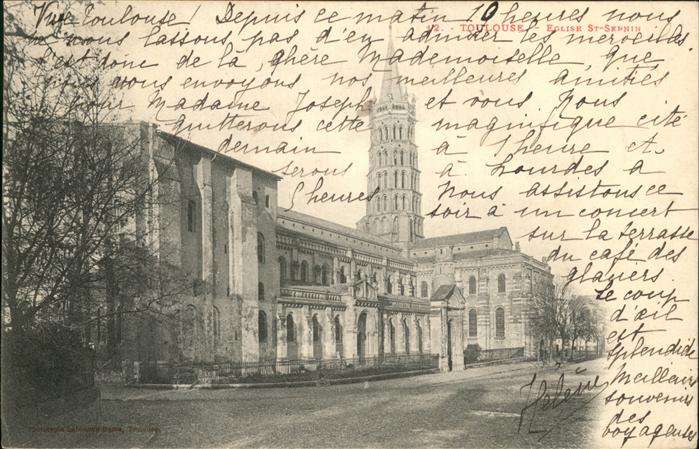 12. - TOULOUSE. - EGLISE ST-SERNIN
Vive Toulouse! Depuis ce matin 10 heures nous
nous lassons pas d'en admirer les merveilles
C'est donc de la, chère Mademoiselle, que
vous envoyons nos meilleures amitiés
pour Madame Joseph et vous Nous
quitterons cette magnifique cité
demain à 1 heure et
serons à Lourdes à
5 heures Nous assistons ce
soir à un concert
sur la terrasse
du café des
glaciers
Le coup
d'œil
est
splendide
Meilleurs
souvenirs
des
voyageuses